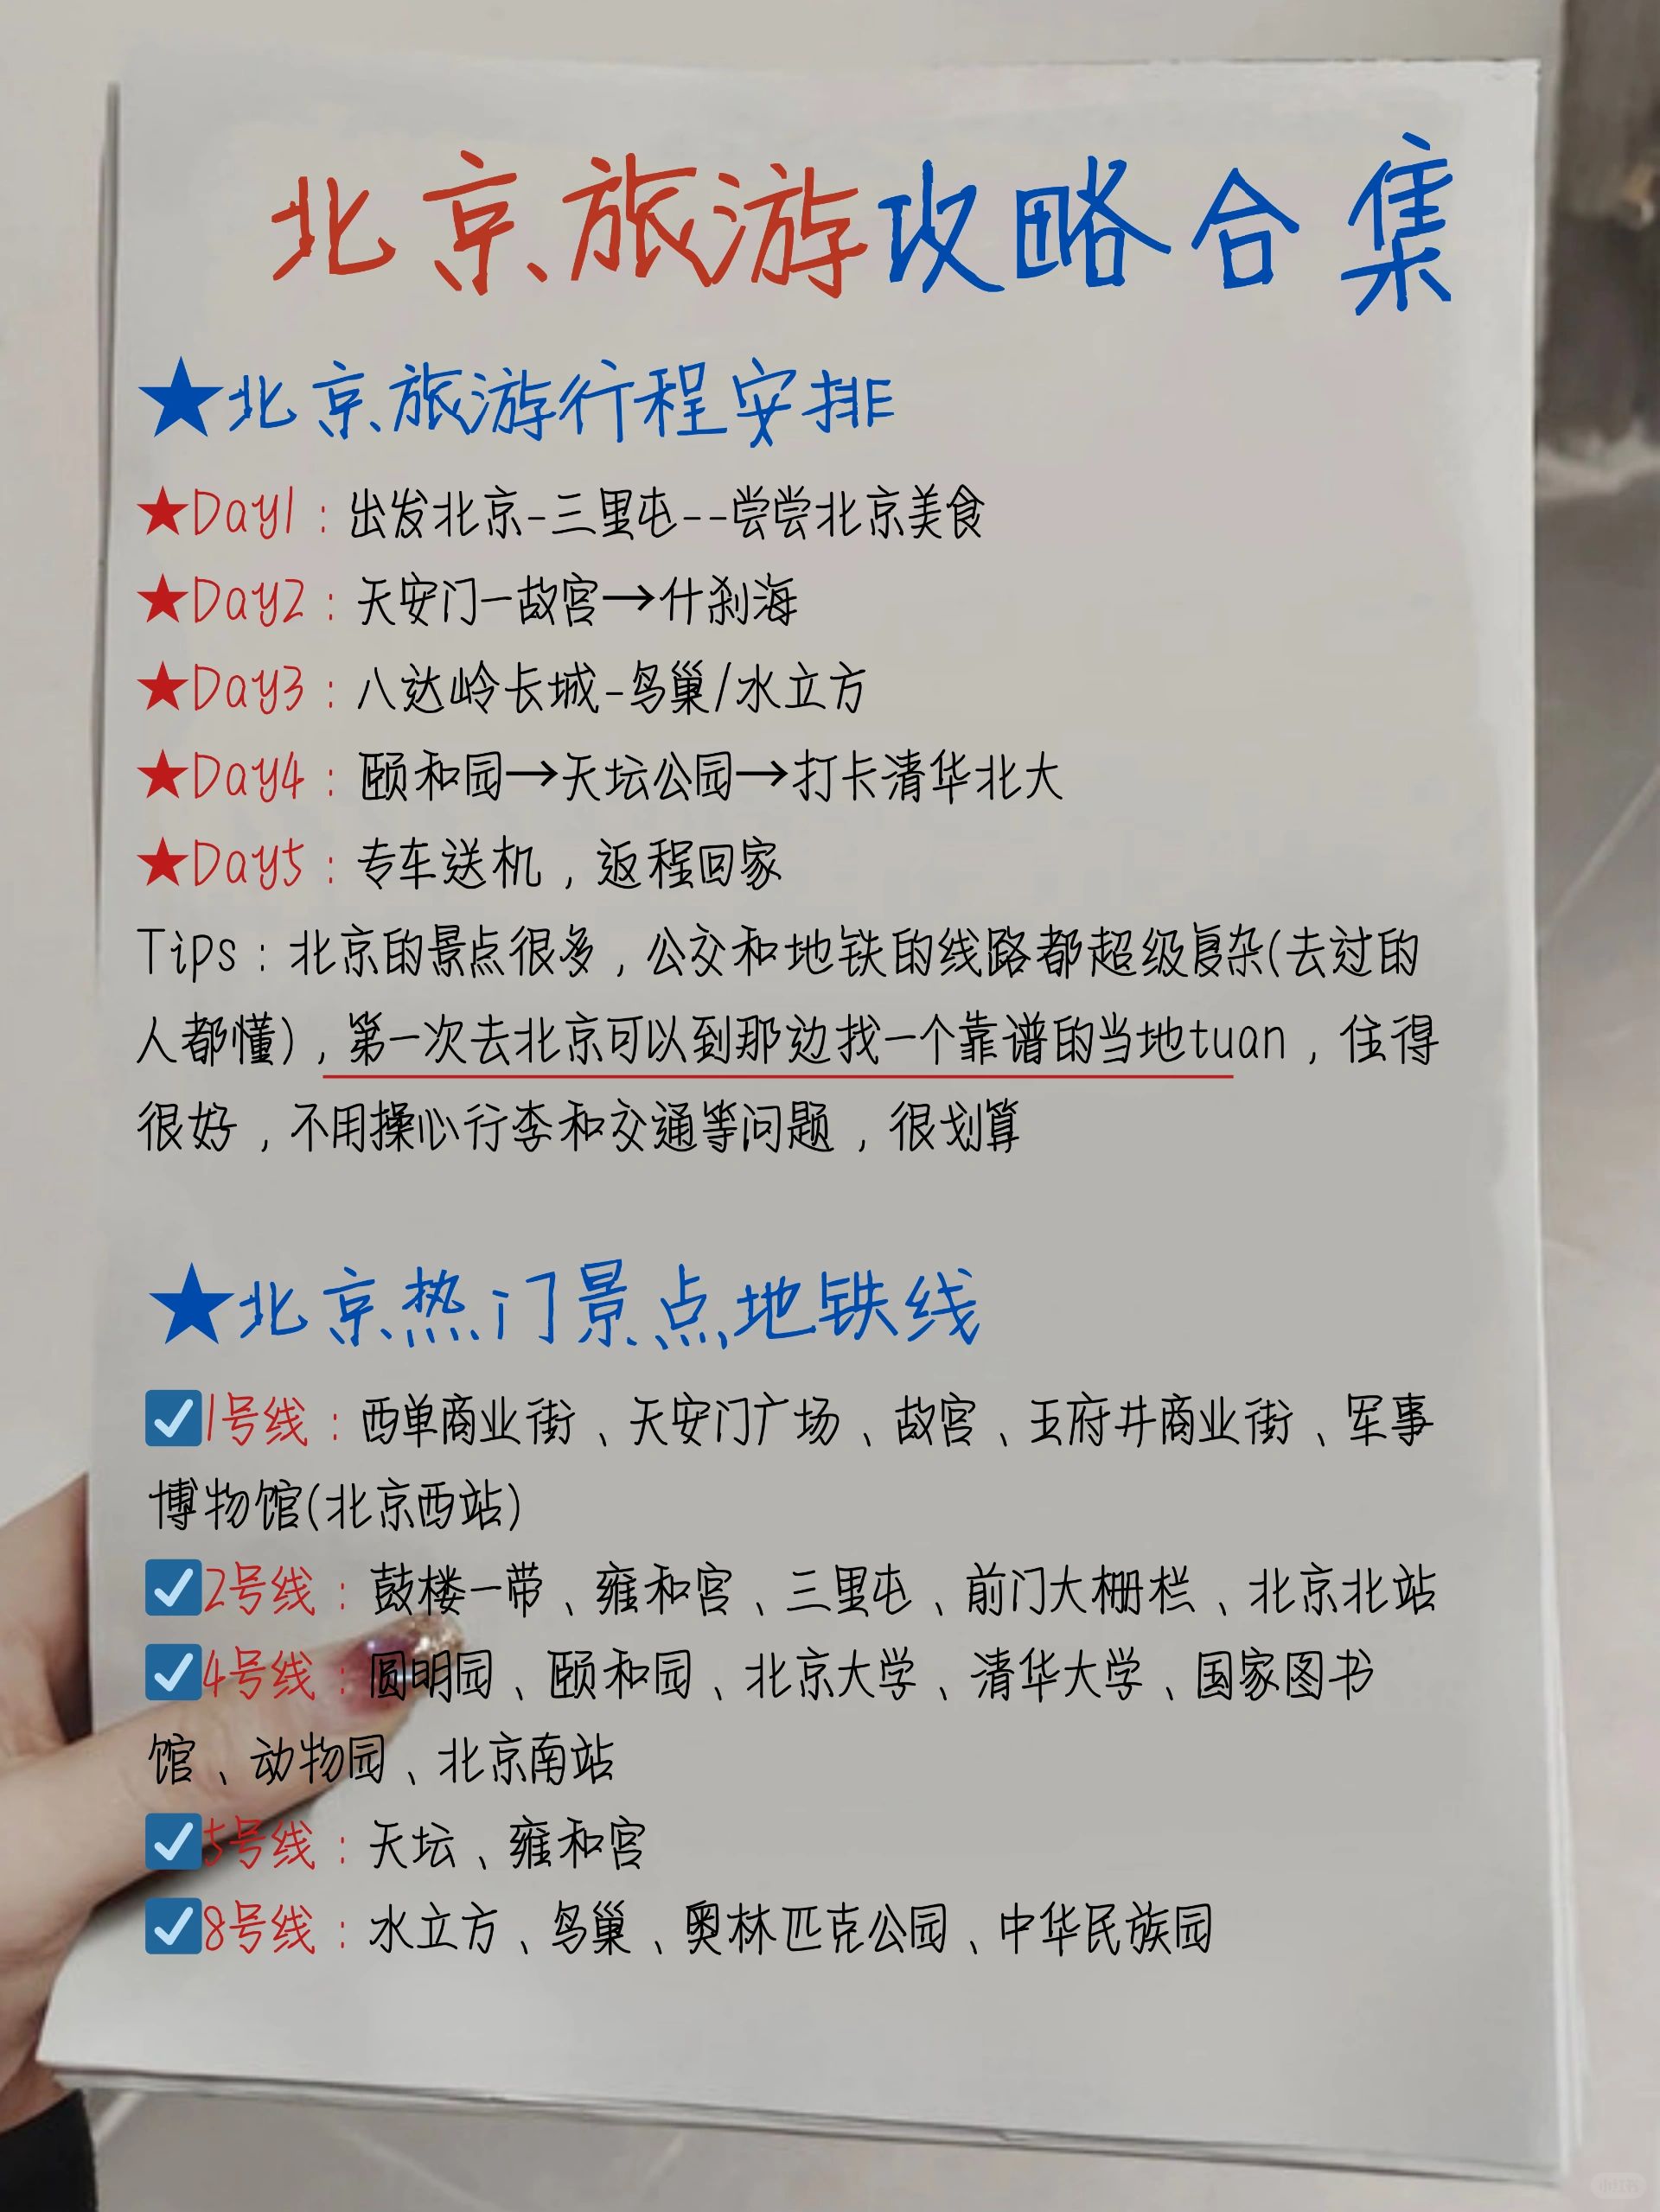 北京旅游攻略合集
★北京旅游行程安排
★Day1：出发北京-三里屯--尝尝北京美食
★Day2：天安门—故宫→什刹海
★Day3：八达岭长城-鸟巢/水立方
★Day4：颐和园→天坛公园→打卡清华北大
★Day5：专车送机，返程回家
Tips：北京的景点很多，公交和地铁的线路都超级复杂(去过的
人都懂)，第一次去北京可以到那边找一个靠谱的当地tuan，住得
很好，不用操心行李和交通等问题，很划算
★北京热门景点地铁线
☑1号线：西单商业街、天安门广场、故宫、王府井商业街、军事
博物馆(北京西站)
☑2号线：鼓楼一带、雍和宫、三里屯、前门大栅栏、北京北站
☑4号线：圆明园、颐和园、北京大学、清华大学、国家图书
馆、动物园、北京南站
☑5号线：天坛、雍和宫
☑8号线：水立方、鸟巢、奥林匹克公园、中华民族园
小红书